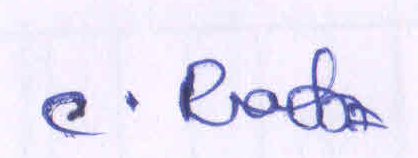 c. Radha